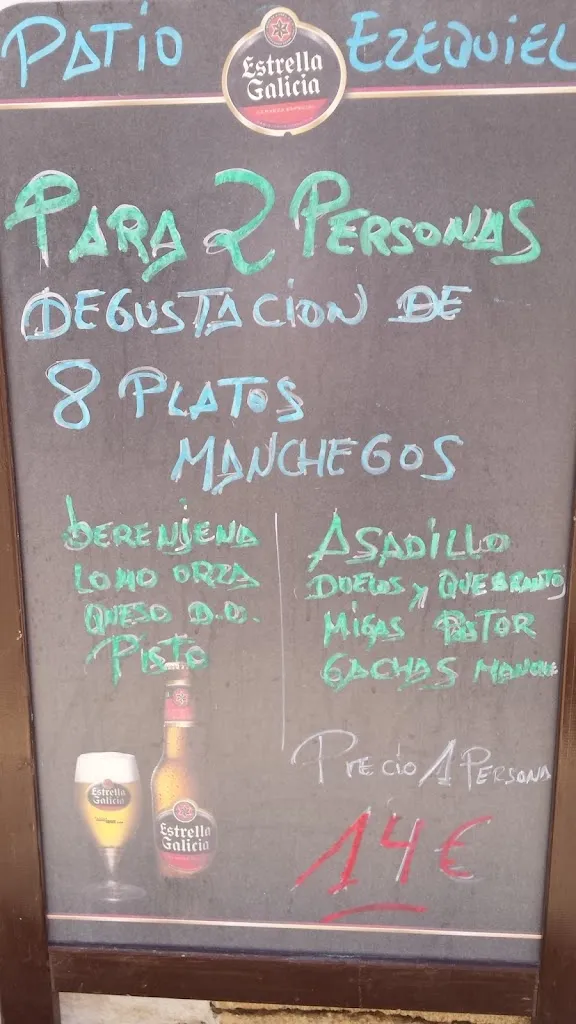 PATIO EZEQUIEL
Estrella Galicia
PARA 2 PERSONAS
DEGUSTACION DE
8 PLATOS
MANCHEGOS
BERENJENA
LOMO ORZA
QUESO D.O.
PISTO
ASADILLO
DUELOS y QUEBRANTO
MIGAS PASTOR
GACHAS MANCHE
PRECIO 1 PERSONA
14€
Estrella Galicia
Estrella Galicia